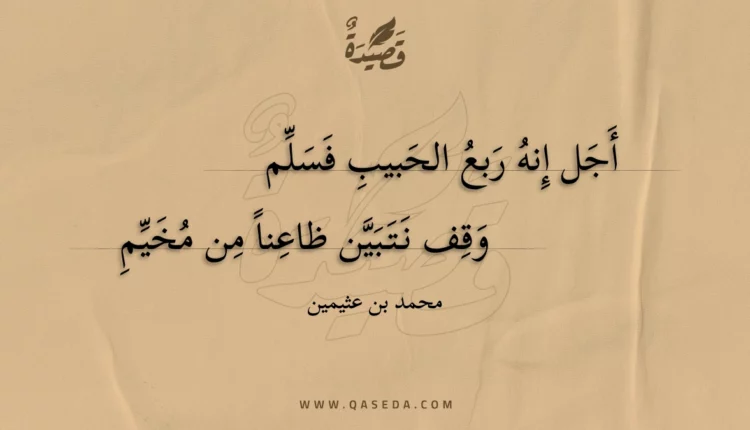 قَصِيْدَةٌ
أَجَل إِنهُ رَبعُ الحَبيبِ فَسَلِّم
وَقِف نَتَبَيَّن ظاعِناً مِن مُخَيِّمِ
محمد بن عثيمين
WWW.QASEDA.COM